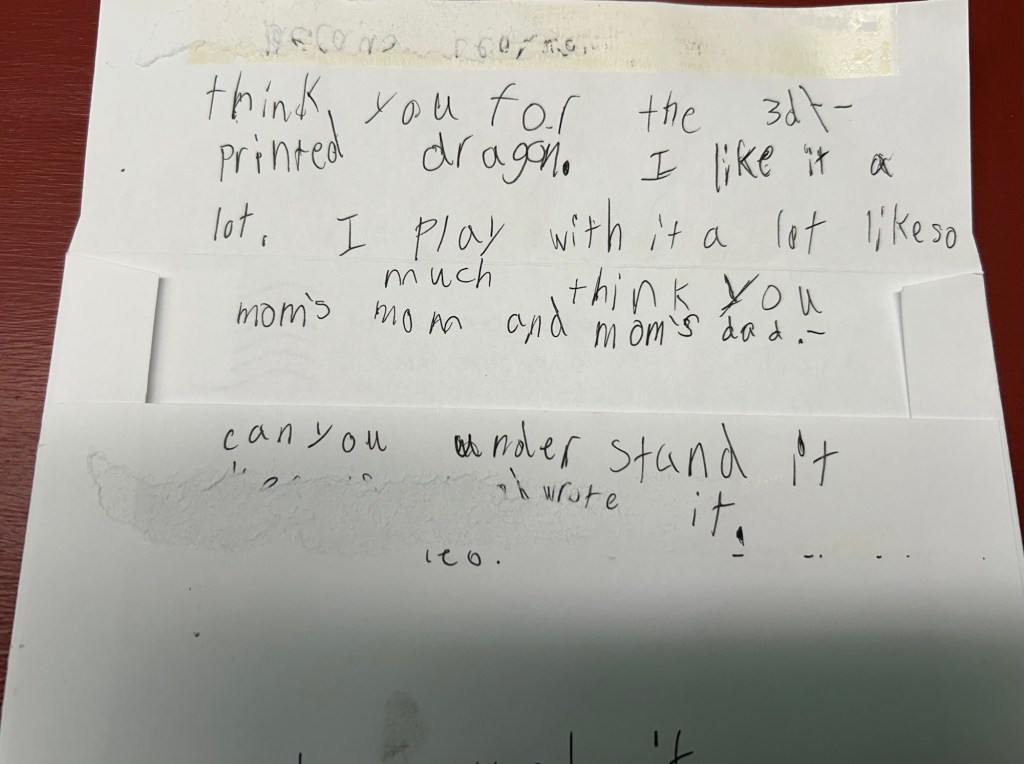 think you for the 3d-
printed dragon. I like it a
lot. I play with it a lot like so
much think you
mom's mom and mom's dad.-
can you under stand it
wrote it.
leo.